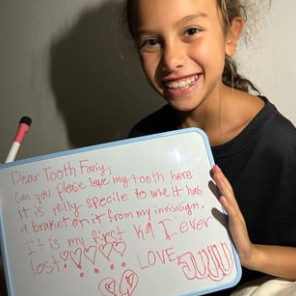 Dear Tooth Fairy,
Can you please leave my tooth here
it is really specile to me it has
a braket on it from my invisalign.
It is my first K9 I ever
lost!
LOVE JUJU